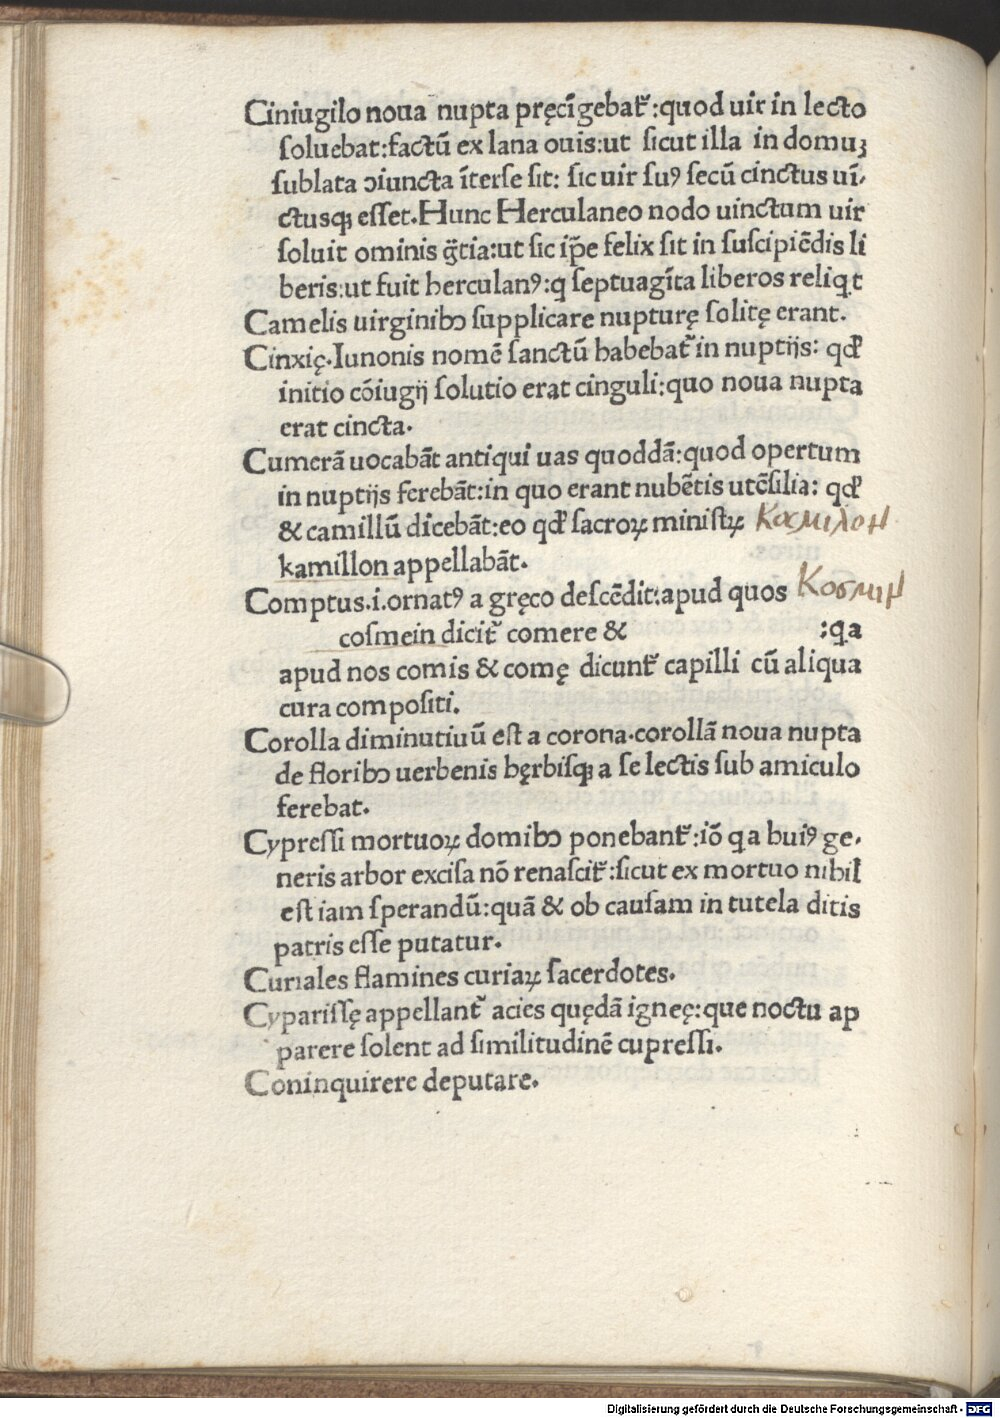 Ciniugilo noua nupta pręcīgebat᷑:quod uir in lecto
soluebat:factū ex lana ouis:ut sicut illa in domuȝ
sublata ↄiuncta īterse sit: sic uir suꝰ secū cinctus uī-
ctusqꝫ esset.Hunc Herculaneo nodo uinctum uir
soluit ominis g̃tia:ut sic ip̄e felix sit in suscipiēdis li
beris:ut fuit herculanꝰ:q septuagīta liberos reliq̇t
Camelis uirginibↄ supplicare nupturę solitę erant.
Cinxię.Iunonis nomē sanctū habebat᷑ in nuptijs: qđ
initio cōiugij solutio erat cinguli:quo noua nupta
erat cincta.
Cumerā uocabāt antiqui uas quoddā:quod opertum
in nuptijs ferebāt:in quo erant nubētis utēsilia: qđ
& camillū dicebāt:eo qđ sacroꝝ ministꝝ Καμιλομ
kamillon appellabāt.
Comptus.i.ornatꝰ a gręco descēdit:apud quos Κοσμιμ
cosmein dicit᷑ comere & :q̇a
apud nos comis & comę dicunt᷑ capilli cū aliqua
cura compositi.
Corolla diminutiuū est a corona.corollā noua nupta
de floribↄ uerbenis hęrbisqꝫ a se lectis sub amiculo
ferebat.
Cypressi mortuoꝝ domibↄ ponebant᷑:iō q̇a huiꝰ ge-
neris arbor excisa nō renascit᷑:sicut ex mortuo nihil
est iam sperandū:quā & ob causam in tutela ditis
patris esse putatur.
Curiales flamines curiaꝝ sacerdotes.
Cyparissę appellant᷑ acies quędā igneę:que noctu ap
parere solent ad similitudinē cupressi.
Coninquirere deputare.
Digitalisierung gefördert durch die Deutsche Forschungsgemeinschaft - DFG